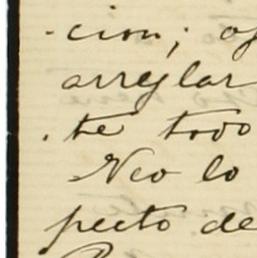 -cion; of
arreglar
.te todo
Neo lo
pecto de